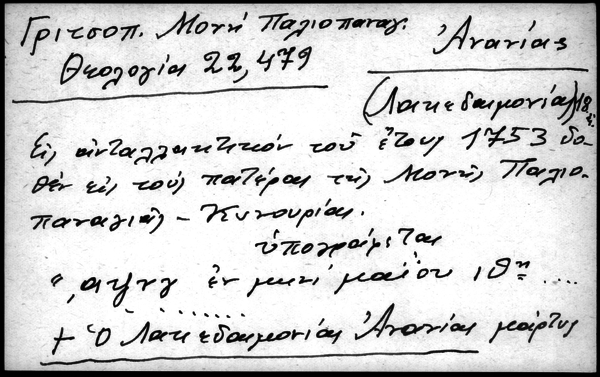 Γριτσοπ. Μονή Παλιοπαναγ.
Θεολογία 22,479
Ἀνανίας
(Λακεδαιμονίας) 18
Εἰς ἀνταλλακτικόν τοῦ ἔτους 1753 δο-
θέν εἰς τούς πατέρας τῆς Μονῆς Παλιο-
παναγιᾶς - Κυνουρίας.
ὑπογράφεται
",αψνγ ἐν μηνί μαΐου ιθῃ ....
+ Ὁ Λακεδαιμονίας Ἀνανίας μάρτυς